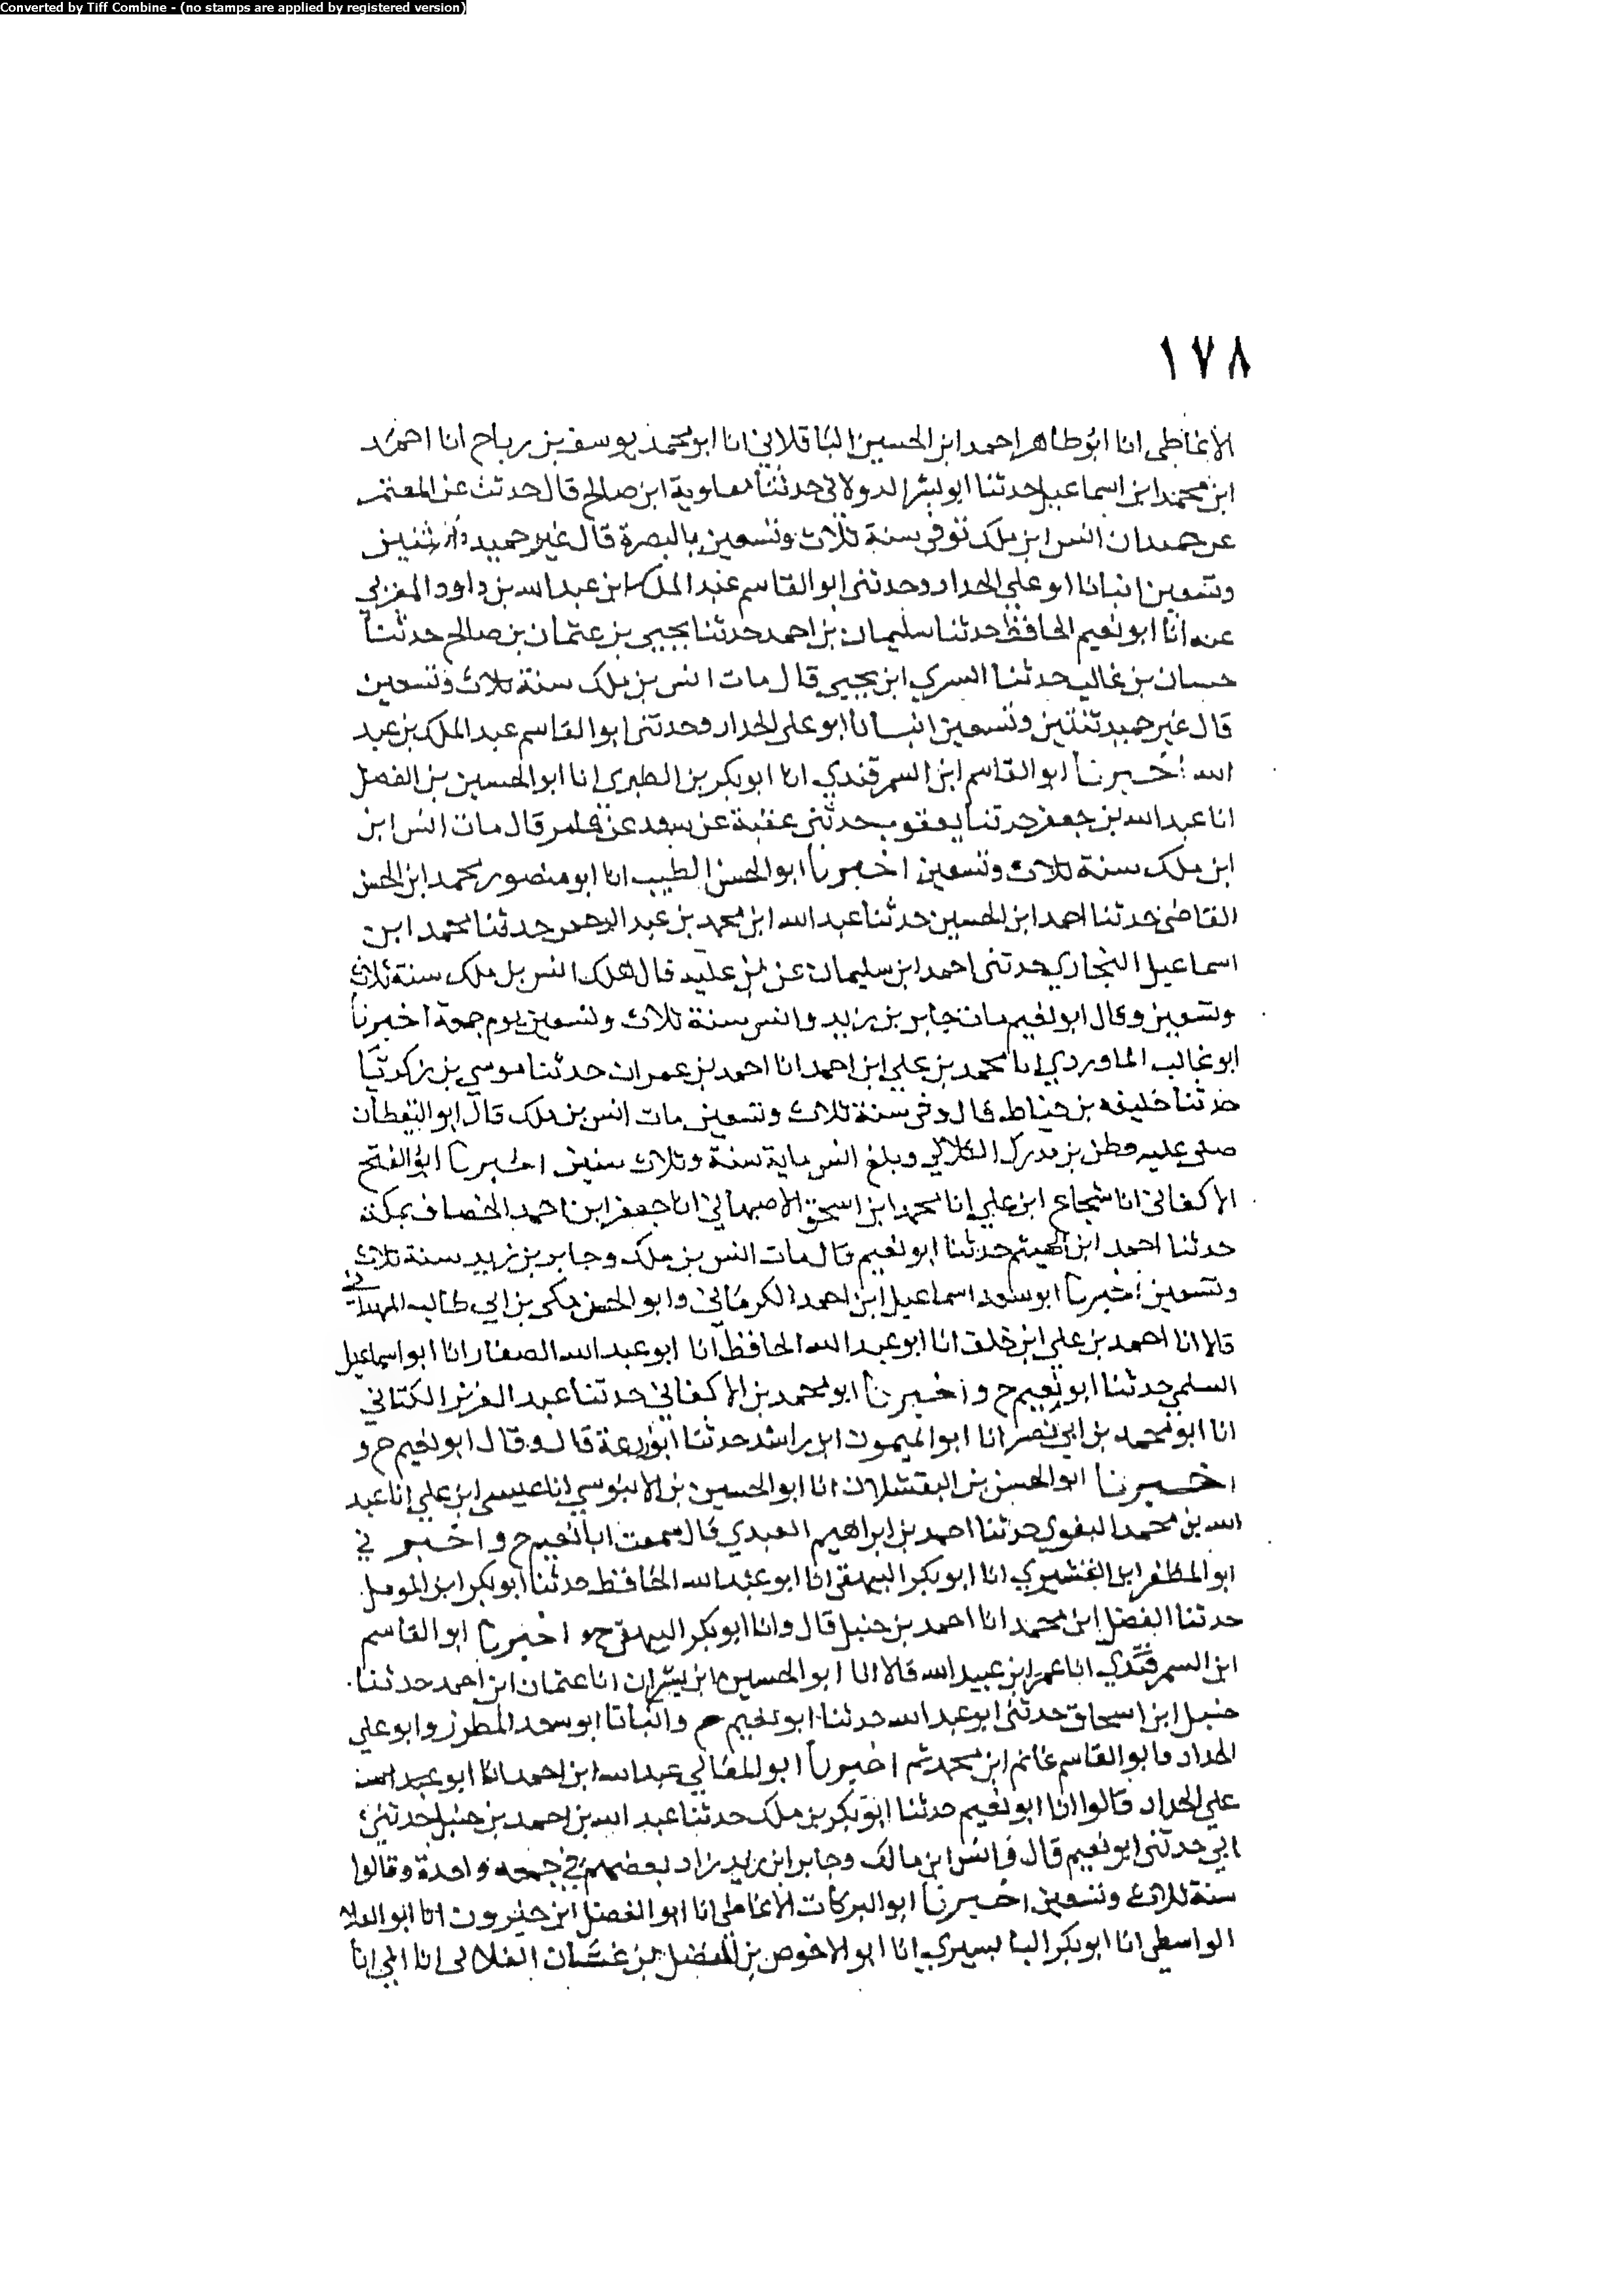 Converted by Tiff Combine - (no stamps are applied by registered version)
١٧٨
الانماطي انا ابو طاهر احمد ابن الحسين الباقلاني انا ابو محمد يوسف بن رباح انا احمد
ابن محمد ابن اسماعيل حدثنا ابو بشر الدولابي حدثنا معاوية ابن صالح قال حدثت عن المعتمر
عن حميد ان انس ابن ملك توفي سنة ثلاث وتسعين بالبصرة قال غير حميد ثنين
وتسعين انبانا ابو علي الحداد وحدثني ابو القاسم عبد الملك ابن عبد الله بن داود المغربي
عنه انا ابو نعيم الحافظ حدثنا سليمان بن احمد حدثنا يحيى بن عثمان بن صالح حدثنا
حسان بن غالب حدثنا السري ابن يحيى قال مات انس بن ملك سنة ثلاث وتسعين
قال غير حميد ثنتين وتسعين انبانا ابو علي الحداد وحدثني ابو القاسم عبد الملك بن عبد
الله اخبرنا ابو القاسم ابن السمرقندي انا ابو بكر بن الطبري انا ابو الحسين بن الفضل
انا عبد الله بن جعفر حدثنا يعقوب حدثني عقبة عن سعد عن عامر قال مات انس ابن
ابن ملك سنة ثلاث وتسعين اخبرنا ابو الحسن الطيب انا ابو منصور محمد ابن الحسن
القاضي حدثنا احمد ابن الحسين حدثنا عبد الله ابن محمد بن عبد الرحمن حدثنا محمد ابن
اسماعيل البخاري حدثني احمد ابن سليمان عن بن علية قال هلك انس بن ملك سنة ثلاث
وتسعين وقال ابو نعيم مات جابر بن زيد وانس سنة ثلاث وتسعين يوم جمعة اخبرنا
ابو غالب الماوردي انا محمد بن علي ابن احمد انا احمد بن عمران حدثنا موسى بن زكريا
حدثنا خليفه بن خياط قال وفي سنة ثلاث وتسعين مات انس بن ملك قال ابو اليقظان
صلى عليه قطن بن مدرك الكلابي وبلغ انس ماية سنة وثلاث سنين اخبرنا ابو الفتح
الاكفاني انا شجاع ابن علي انا محمد ابن اسحق الاصبهاني انا جعفر ابن احمد الخصاف بمكة
حدثنا احمد ابن الهيثم حدثنا ابو نعيم قال مات انس بن ملك وجابر بن زيد سنة ثلاث
وتسعين اخبرنا ابو سعد اسماعيل ابن احمد الكرماني وابو الحسن مكي بن ابي طالب الهمداني
قالا انا احمد بن علي ابن خلف انا ابو عبد الله الحافظ انا ابو عبد الله الصفار انا ابو اسماعيل
السلمي حدثنا ابو نعيم ح واخبرنا ابو محمد بن الاكفاني حدثنا عبد العزيز الكتاني
انا ابو محمد بن ابي نصر انا ابو الميمون ابن راشد حدثنا ابو زرعة قال وقال ابو نعيم ح و
اخبرنا ابو الحسن بن البقشلان انا ابو الحسين بن الابنوسي انا عيسى ابن علي انا عبد
الله بن محمد البغوي حدثنا احمد بن ابراهيم العبدي قال سمعت ابا نعيم ح واخبر ني
ابو المظفر ابن القشيري انا ابو بكر البيهقي انا ابو عبد الله الحافظ حدثنا ابو بكر ابن المومل
حدثنا الفضل ابن محمد انا احمد بن حنبل قال وانا ابو بكر البيهقي ح و اخبرنا ابو القاسم
ابن السمرقندي انا عمر ابن عبيد الله قالا انا ابو الحسين ابن بشران انا عثمان ابن احمد حدثنا
حنبل ابن اسحاق حدثني ابو عبد الله حدثنا ابو نعيم ح وانبانا ابو سعد المطرز وابو علي
الحداد وابو القاسم غانم ابن محمد ثم اخبرنا ابو المعالي عبد الله ابن احمد انا ابو
علي الحداد قالوا انا ابو نعيم حدثنا ابو بكر بن ملك حدثنا عبد الله بن احمد بن حنبل حدثني
ابي حدثني ابو نعيم قال وانس ابن مالك وجابر ابن زيد زاد بعضهم في جمعه واحدة وقالوا
سنة ثلاث وتسعين اخبرنا ابو البركات الانماطي انا ابو الفضل ابن خيرون انا ابو العلاء
الواسطي انا ابو بكر البابسيري انا ابو الاحوص بن المفضل بن غسان الغلابي انا ابي انا